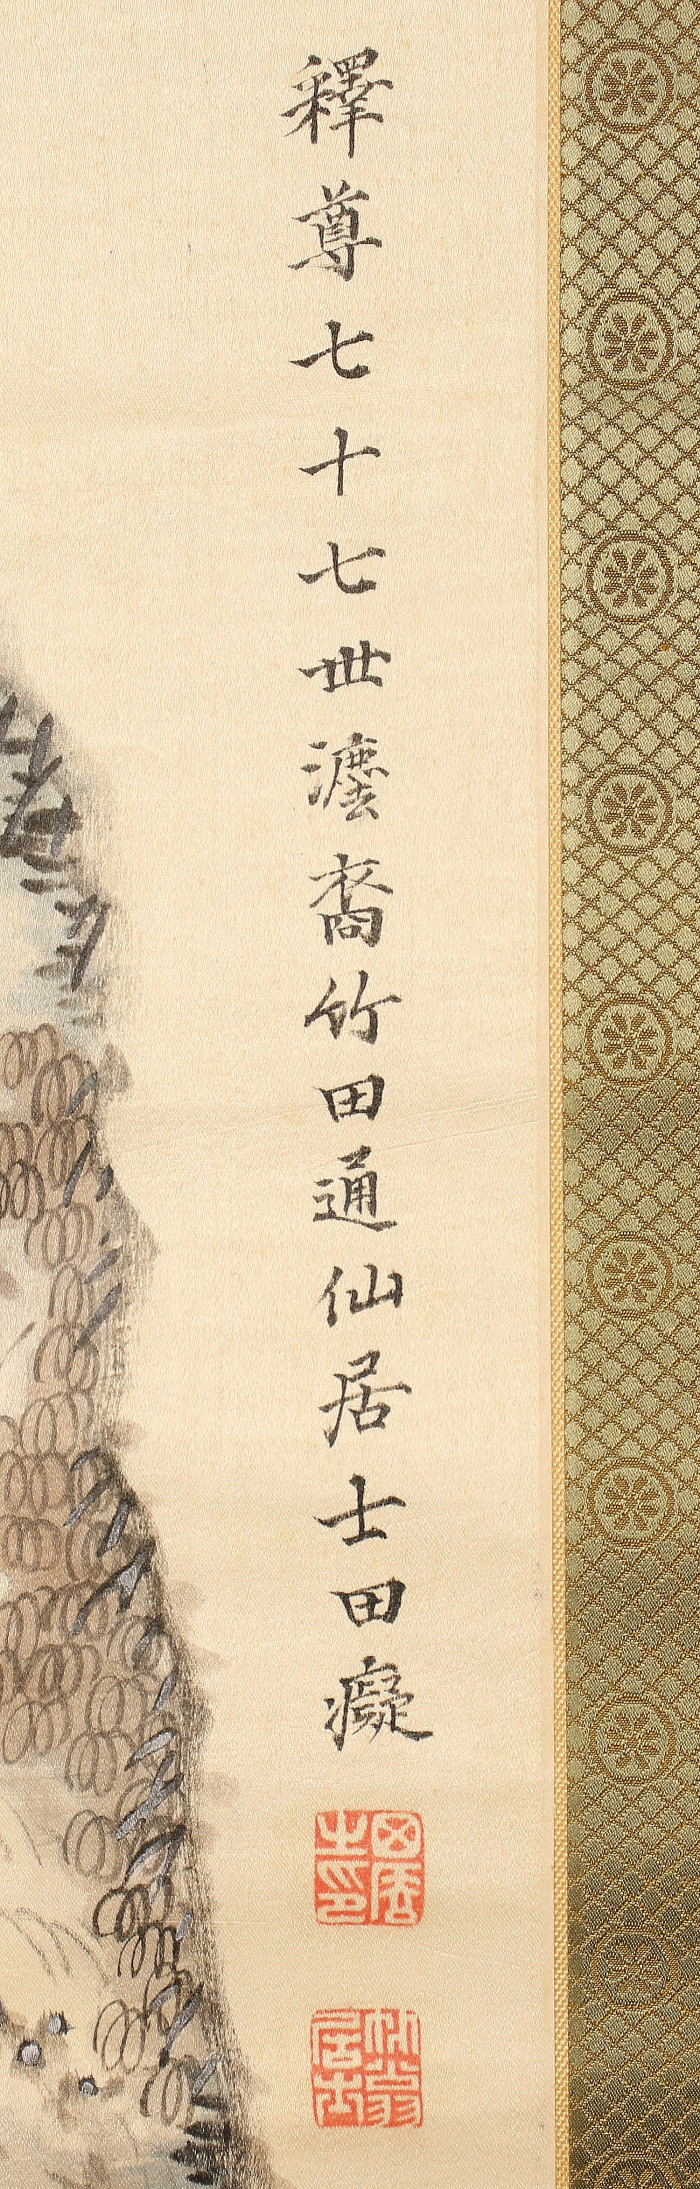 釋尊七十七世灋裔竹田通仙居士田癡